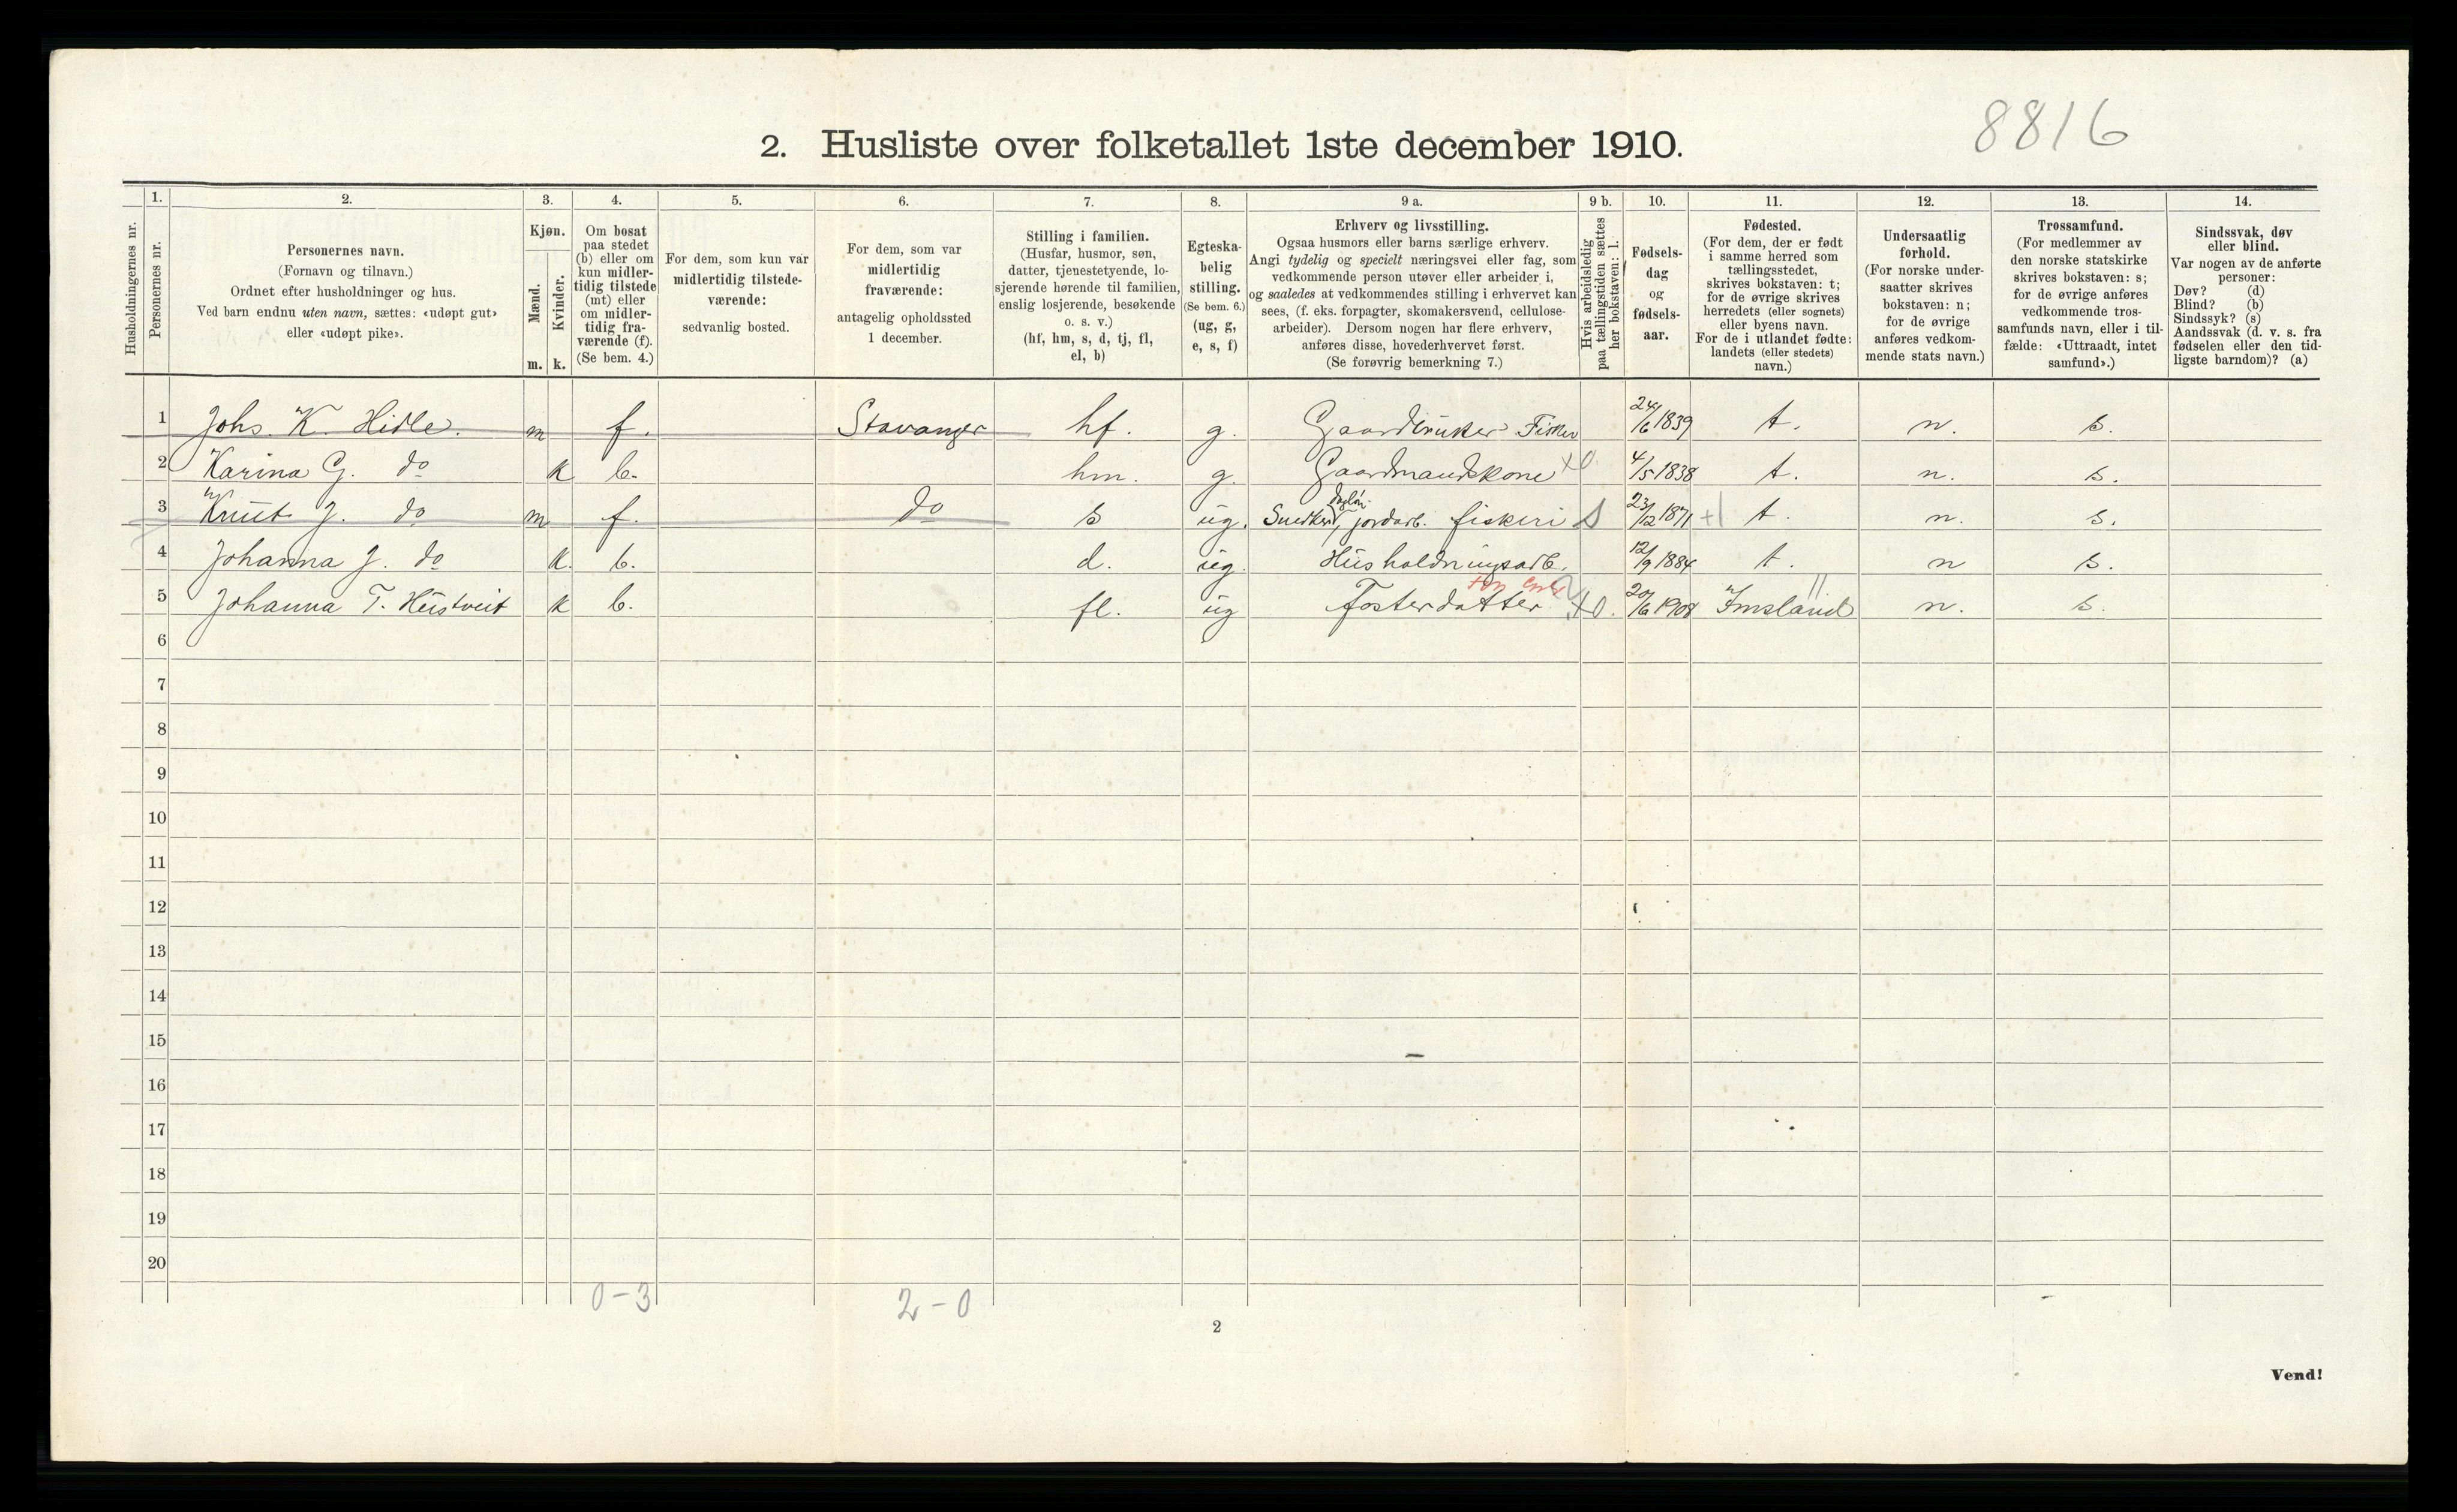 8816
2. Husliste over folketallet 1ste december 1910.
Husholdningernes nr.
1.
Personernes nr.
2.
Personernes navn.
(Fornavn og tilnavn.)
Ordnet efter husholdninger og hus.
Ved barn endnu uten navn, sættes: «udøpt gut»
eller «udøpt pike».
3.
Kjøn.
Mænd.
Kvinder.
m. k.
4.
Om bosat
paa stedet
(b) eller om
kun midler-
tidig tilstede
(mt) eller
om midler-
tidig fra-
værende (f).
(Se bem. 4.)
5.
For dem, som kun var
midlertidig tilstede-
værende:
sedvanlig bosted.
6.
For dem, som var
midlertidig
fraværende:
antagelig opholdssted
1 december.
7.
Stilling i familien.
(Husfar, husmor, søn,
datter, tjenestetyende, lo-
sjerende hørende til familien,
enslig losjerende, besøkende
o. s. v.)
(hf, hm, s, d, tj, fl,
el, b)
8.
Egteska-
belig
stilling.
(Se bem. 6.)
(ug, g,
e, s, f)
9 a.
Erhverv og livsstilling.
Ogsaa husmors eller barns særlige erhverv.
Angi tydelig og specielt næringsvei eller fag, som
vedkommende person utøver eller arbeider i,
og saaledes at vedkommendes stilling i erhvervet kan
sees, (f. eks. forpagter, skomakersvend, cellulose-
arbeider). Dersom nogen har flere erhverv,
anføres disse, hovederhvervet først.
(Se forøvrig bemerkning 7.)
9 b.
Hvis arbeidsledig
paa tællingstiden sættes
her bokstaven: l.
10.
Fødsels-
dag
og
fødsels-
aar.
11.
Fødested.
(For dem, der er født
i samme herred som
tællingsstedet,
skrives bokstaven: t;
for de øvrige skrives
herredets (eller sognets)
eller byens navn.
For de i utlandet fødte:
landets (eller stedets)
navn.)
12.
Undersaatlig
forhold.
(For norske under-
saatter skrives
bokstaven: n;
for de øvrige
anføres vedkom-
mende stats navn.)
13.
Trossamfund.
(For medlemmer av
den norske statskirke
skrives bokstaven: s;
for de øvrige anføres
vedkommende tros-
samfunds navn, eller i til-
fælde: «Uttraadt, intet
samfund».)
14.
Sindssvak, døv
eller blind.
Var nogen av de anførte
personer:
Døv? (d)
Blind? (b)
Sindssyk? (s)
Aandssvak (d. v. s. fra
fødselen eller den tid-
ligste barndom)? (a)
1 Johs. K. Hidle. m f. Stavanger hf. g. Gaardbruker Fisker 24/6 1839 t. n. s.
2 Karina G. do k b. hm. g. Gaardmandskone +0. 4/5 1838 t. n. s.
3 Knut J. do m f. do s ug. Snedker, dagløn jordarb. fiskeri S 23/12 1871 +1 t. n. s.
4 Johanna J. do k. b. d. ug. Husholdningsarb. 12/9 1884 t. n s.
5 Johanna T. Hustveit k b. fl. ug Fosterdatter +0. 20/6 1908 Imsland n. s.
6
7
8
9
10
11
12
13
14
15
16
17
18
19
20
0-3
2-0
2
Vend!